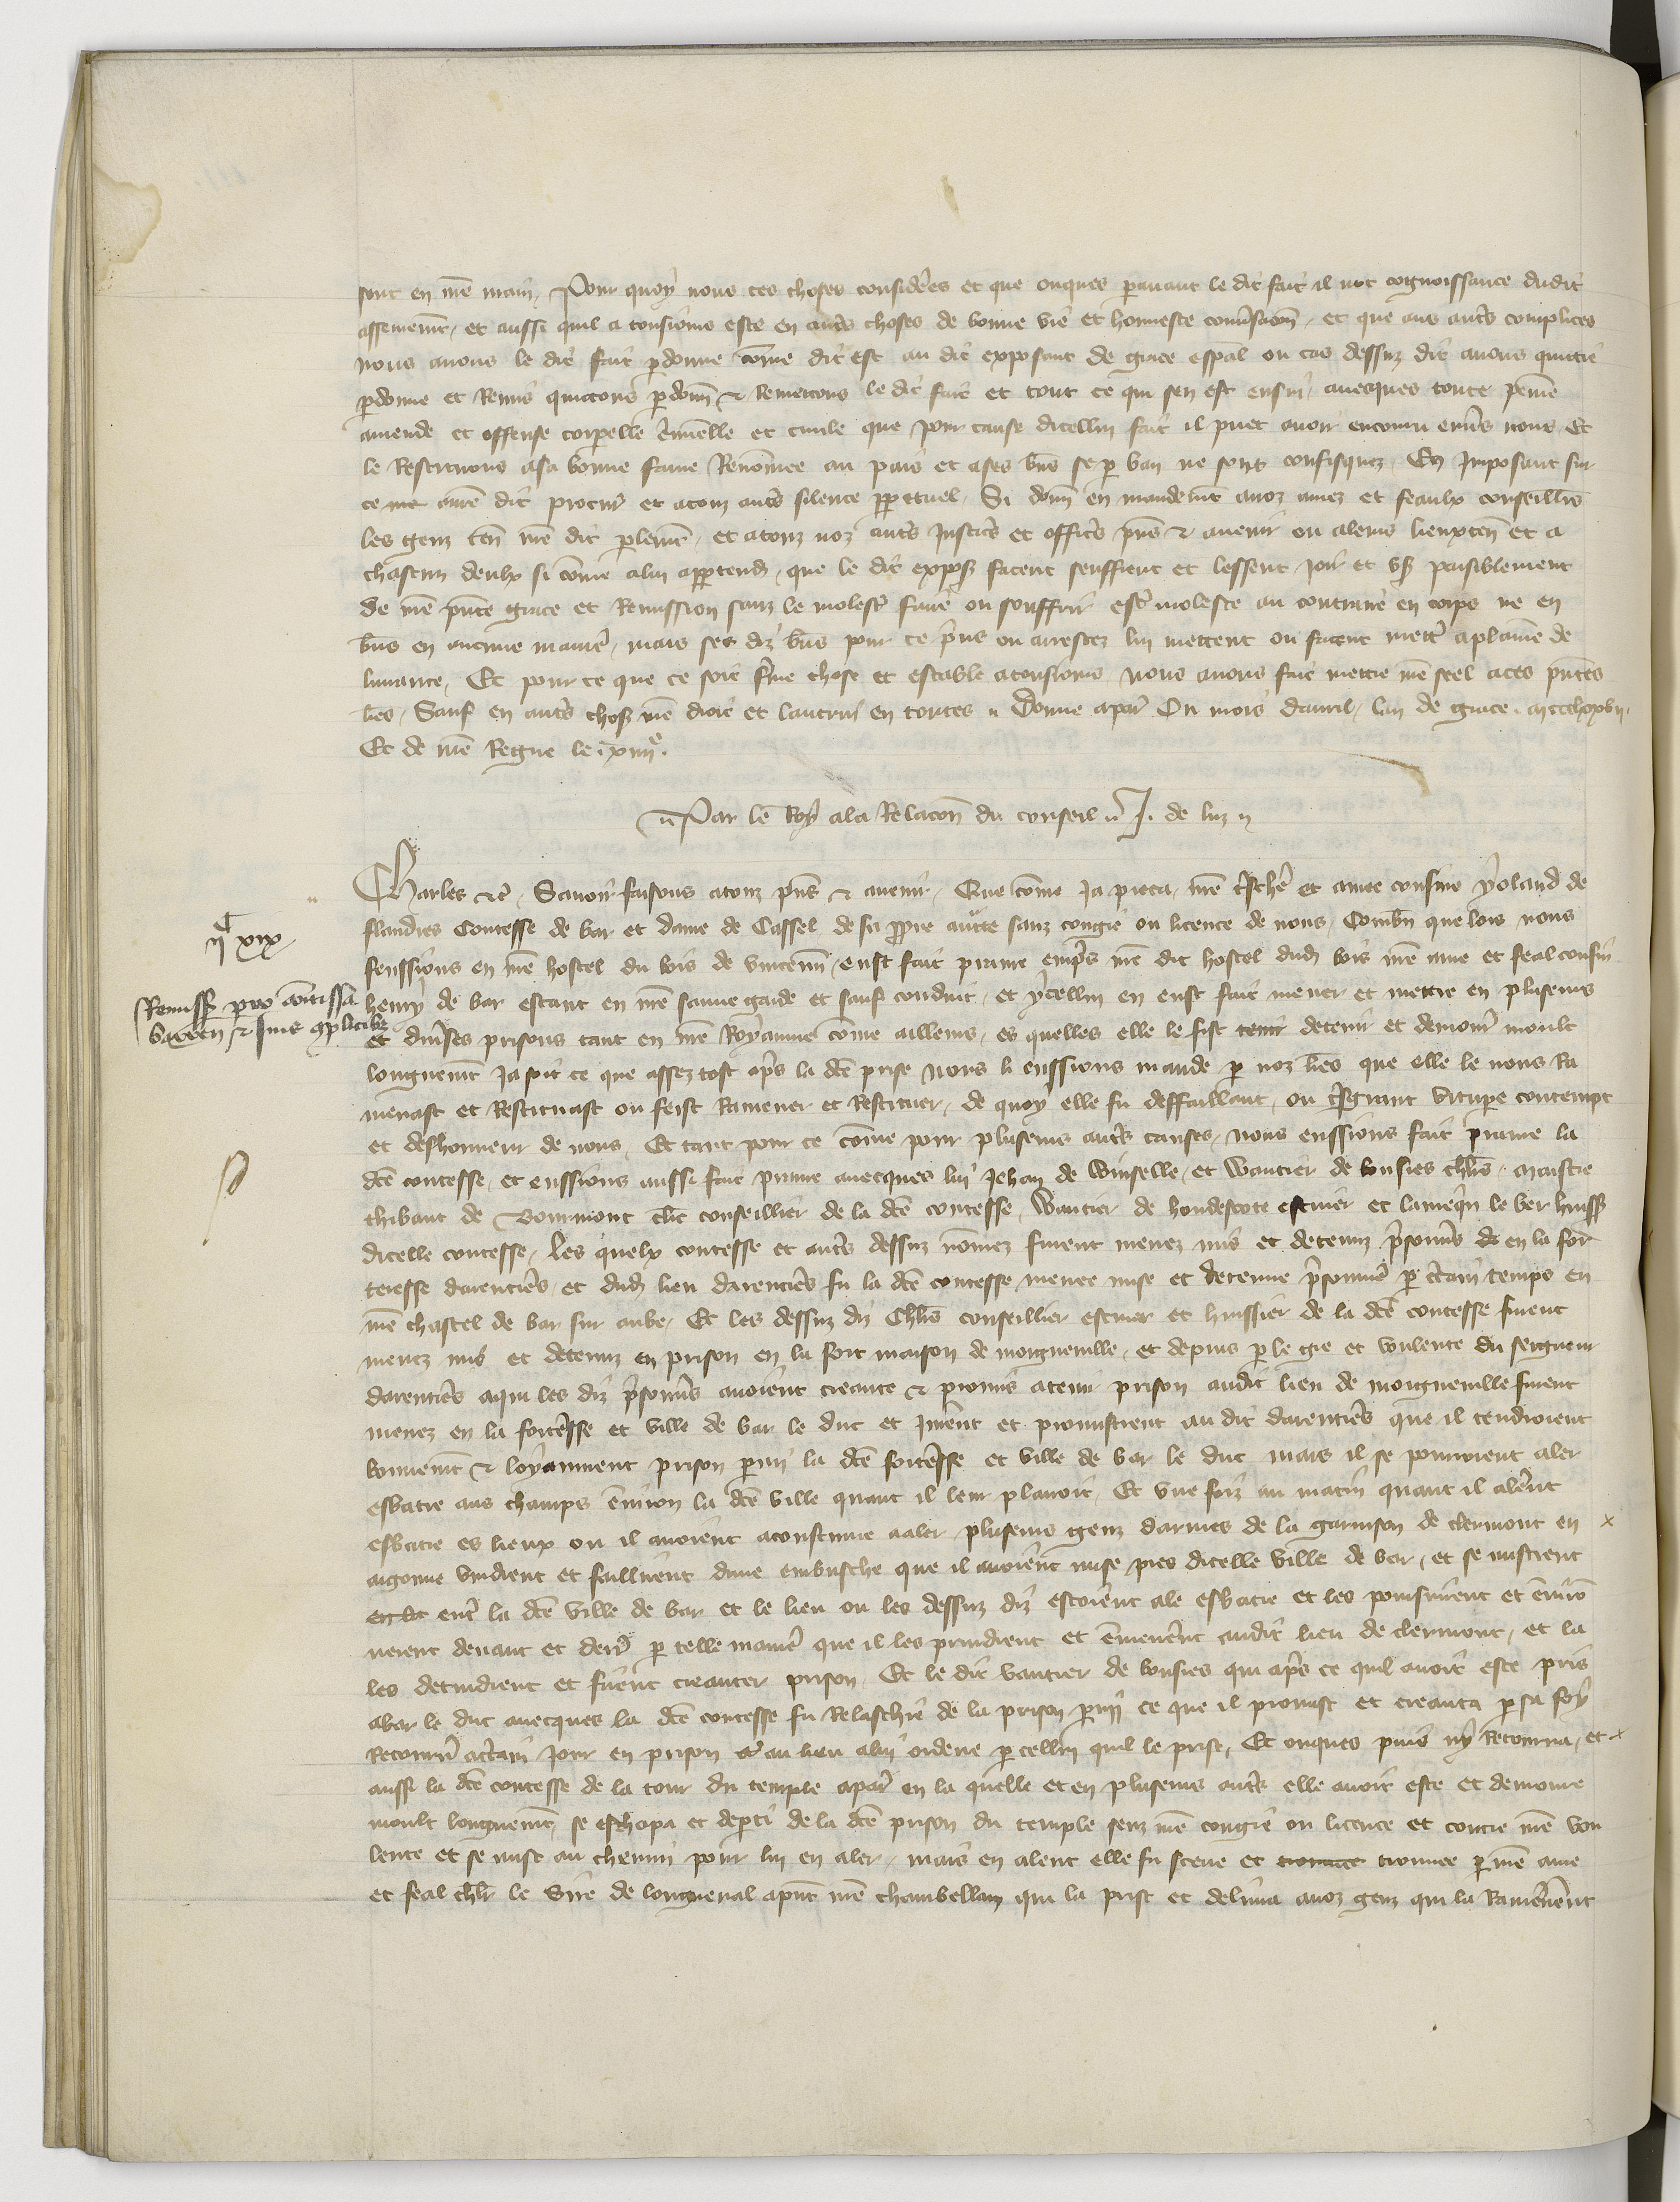 sont en nre main, Pour quoy nous ces choses considerees et que onques pavant le dit fait il not cognoissance dudit
assenement, et aussi quil a tousiours este en autres choses de bonne vie et honneste conversacion, et que aus autres complices
nous avons le dit fait pdonne come dit est au dit exposant de grace espal ou cas dessuz dit avons quittie
pdonne et Remis quittons pdonn & Remettons le dit fait et tout ce qui sen est ensui, avecques toute peine
amende et offense corporelle criminelle et civile que pour cause dicellui fait il puet avoir encouru envers nous Et
le Restituons a sa bonne fame Renommee au pais et a ses biens se par ban ne sont confisquez, En Imposant sur
ce a nre dit procur et a touz autres silence perpetuel, Si donn en mandement a noz amez et feaulx conseilliers
les genz ten nre dit plement, et a touz noz autres Justic et offic pns & avenir ou a leurs lieuxten et a
chascun deulx si come a lui appartendra, que le dit expos facent seuffrent et lessent joir et user paisiblement
de nre pnte grace et Remission sanz le molester faire ou souffrir estre moleste au contraire en corps ne en
biens en aucune maniere, mais ses diz biens pour ce prins ou arrestez lui mettent ou facent mettre a plaine de
livrance, Et pour ce que ce soit ferme chose et estable a tousiours nous avons fait mettre nre seel a ces pntes
lres, Sauf en autres choses nre droit et lautrui en toutes Donne a paris Ou mois davril, lan de grace mccclxxvii
Et de nre Regne le xiiii^e.
Par le Roy a la Relacon du conseil J. de luz
Charles &c, Savoir faisons a touz pns & avenir, Que come Ja pieca, nre treschiere et amee cousine yoland de
flandres Contesse de bar et dame de Cassel de sa propre auctorite sanz congie ou licence de nous, Combien que lors nous
feussions en nre hostel du bois de vincennes, eust fait prenre empres nre dit hostel dudit bois nre ame et feal cousin
henry de bar estant en nre sauve garde et sauf conduit, et ycellui en eust fait mener et mettre en pluseurs
et diverses prisons tant en nre Royaume come ailleurs, es quelles elle le fist tenir detenir et demourer moult
longuement Ja soit ce que assez tost apres la dce prise nous li eussions mande par noz lres que elle le nous Ra
menast et Restituast ou feist Ramener et Restituer, de quoy elle fu deffaillant, ou tresgrant vitupere contempt
et deshonneur de nous, Et tant pour ce come pour pluseurs autres causes, nous eussions fait prenre la
dce contesse, et eussions aussi fait prenre avecques lui Jehan de Winselle, et Wautier de bousies chlrs, maistre
thibaut de Bourmont clerc conseillier de la dce contesse, Wautier de hondescote escuier et lamequin le ver huiss
dicelle contesse, Les quelx contesse et autres dessuz nommez furent menez mis et detenuz prisonniers en la for
teresse darenties, et dudit lieu darenties fu la dce contesse menee mise et detenue prisonniere par certain temps en
nre chastel de bar sur aube, Et les dessuz diz chlrs conseillier escuier et huissier de la dce contesse furent
menez mis et detenuz en prison en la fort maison de mongueville, et depuis par le gre et voulente du seigneur
darenties a qui les diz prisonniers avoient creante & promis a tenir prison audit lieu de mongueville furent
menez en la forteresse et ville de bar le duc et Jurerent et promistrent au dit darenties que il tendroient
bonnement & loyaument prison parmi la dce forteresse et ville de bar le duc mais il se pourroient aler
esbatre aus champs environ la dce ville quant il leur plairoit, Et une foiz au matin quant il alerent
esbatre es lieux ou il avoient acoustume a aler, pluseurs genz darmes de la garnison de clermont en
argonne vindrent et saillirent dune embusche que il avoient mise pres dicelle ville de bar, et se mistrent
entre la dce ville de bar et le lieu ou les dessuz diz estoient ale esbatre et les poursuirent et environ
nerent devant et derriere par telle maniere que il les prindrent et emmenerent audit lieu de clermont, et la
les detindrent et firent creanter prison, Et le dit vautier de bousies qui apres ce quil avoit este pris
a bar le duc avecques la dce contesse fu Relaschie de la prison parmi ce que il promist et creanta par sa foy
Retourner a certain Jour en prison au lieu a lui ordene par cellui quil le prist, Et onques puis ny Retourna, et
aussi la dce contesse de la tour du temple a paris en la quelle et en pluseurs autres elle avoit este et demoure
moult longuement, se eschapa et departi de la dce prison du temple senz nre congie ou licence et contre nre vou
lente et se mist au chemin pour lui en aler, mais en alent elle fu sceue et trouvee trouvee par nre ame
et feal chlr le Sire de longueval a pnt nre chambellan qui la prist et delivra a noz genz qui la Ramenerent
xix
Remiss pro comitissa
barren & suis complicibz